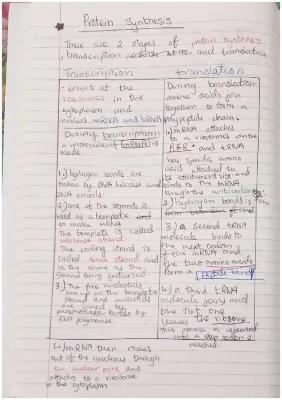 Protein synthesis
There are 2 stages of protein synthesis
, transcription and translation
Transcription
- occurs at the
ribosomes in the
cytoplasm and
involves mRNA and tRNA
During transcription
a molecule of mRNA is
made.
1.) hydrogen bonds are
broken by DNA helicase and
DNA unwinds
2.) one of the strands is
used as a template
to make mRNA
The template is called
antisense strand
The coding strand is
called sense strand and
is the same as the
strand being
3.) The free nucleotides
line up on the template
strand and nucleotides
are joined by
phosphodiester bonds by
RNA polymerase
4.) mRNA then moves
out of the nucleus through
the nuclear pore and
attaches to a ribosome
in the cytoplasm.
translation
During translation
amino acids join
together to form a
polypeptide chain.
1.) mRNA attaches
to a ribosome on the
RER and tRNA
has specific amino
acid attached to
its attachment site and
binds to the mRNA
through the anticodon
2.) hydrogen bonds
formed
3.) a second tRNA
molecule binds to
the next codon
of the mRNA and
the two amino acids
form a peptide bond
4.) a third tRNA
molecule joins and
the first one
leaves the ribosome
this process is repeated
until a stop codon is
reached.